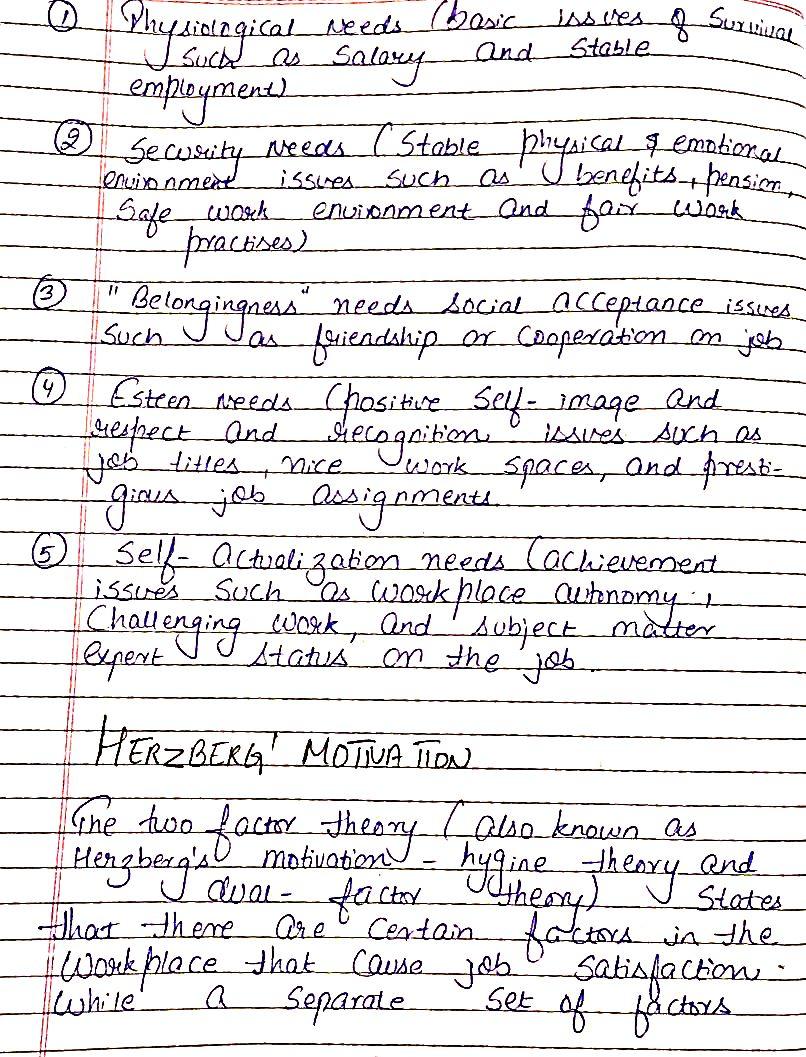 ① Physiological needs (basic issues of Survival
such as Salary and Stable
employment)
② Security Needs (Stable physical & emotional
environment issues such as benefits, pension,
Safe work environment and fair work
practises)
③ "Belongingness" needs social acceptance issues
such as friendship or cooperation on job
④ Esteen needs (positive Self- image and
respect and recognition issues such as
job titles, nice work spaces, and presti-
gious job assignments.
⑤ Self- actualization needs (achievement
issues such as workplace autonomy,
Challenging work, and subject matter
expert status on the job
HERZBERG' MOTIVATION
The two factor theory (also known as
Herzberg's motivation - hygine theory and
dual- factor theory) States
that there are certain factors in the
workplace that cause job satisfaction.
while a separate set of factors